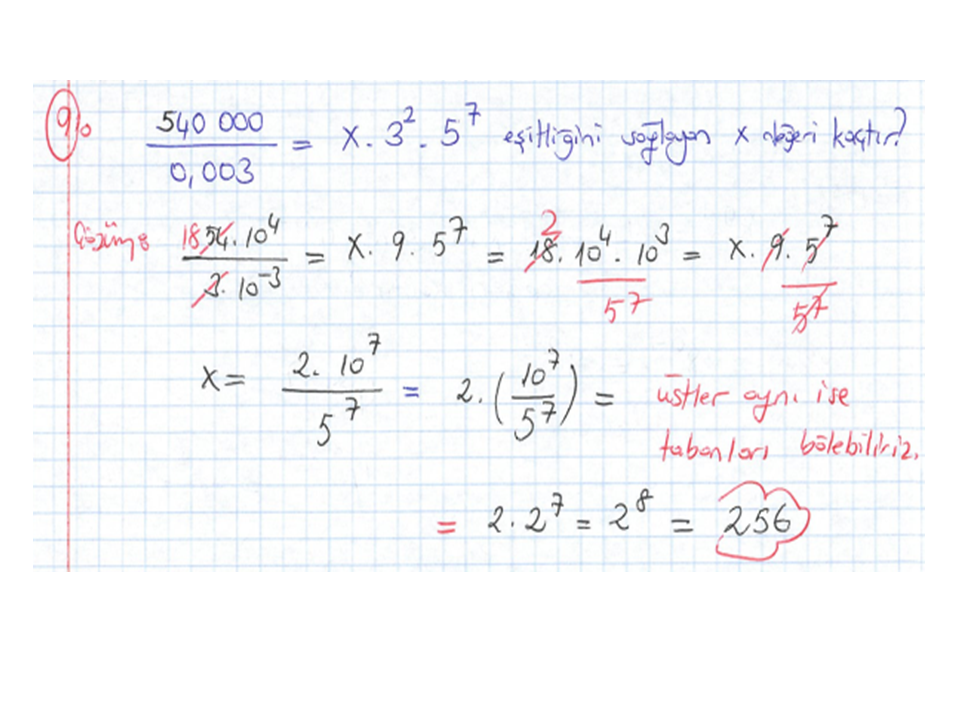 9) 540 000 / 0,003 = x . 3² . 5⁷ eşitliğini sağlayan x değeri kaçtır?
Çözüm: 18 54 . 10⁴ / 3 . 10⁻³ = x . 9 . 5⁷ = 2 18 . 10⁴ . 10³ / 5⁷ = x . 9 . 5⁷ / 5⁷
x = 2 . 10⁷ / 5⁷ = 2 . (10⁷ / 5⁷) = üstler aynı ise
tabanları bölebiliriz.
= 2 . 2⁷ = 2⁸ = 256